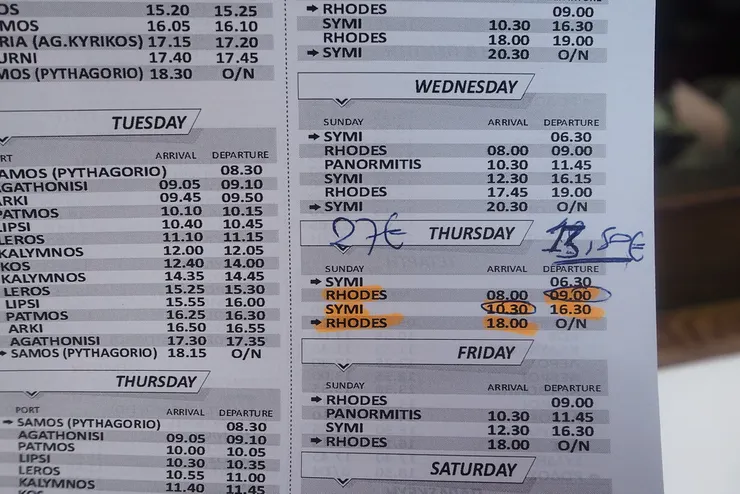 OS 15.20 15.25
MOS 16.05 16.10
RIA (AG.KYRIKOS) 17.15 17.20
URNI 17.40 17.45
MOS (PYTHAGORIO) 18.30 O/N
TUESDAY
RT ARRIVAL DEPARTURE
AMOS (PYTHAGORIO) 08.30
AGATHONISI 09.05 09.10
ARKI 09.45 09.50
PATMOS 10.10 10.15
LIPSI 10.40 10.45
LEROS 11.10 11.15
KALYMNOS 12.00 12.05
KOS 12.40 14.00
KALYMNOS 14.35 14.45
LEROS 15.25 15.30
LIPSI 15.55 16.00
PATMOS 16.25 16.30
ARKI 16.50 16.55
AGATHONISI 17.30 17.35
SAMOS (PYTHAGORIO) 18.15 O/N
THURSDAY
PORT ARRIVAL DEPARTURE
SAMOS (PYTHAGORIO) 08.30
AGATHONISI 09.05 09.10
PATMOS 10.00 10.05
LIPSI 10.30 10.35
LEROS 10.55 11.00
KALYMNOS 11.40 11.45
RHODES 09.00
SYMI 10.30 16.30
RHODES 18.00 19.00
SYMI 20.30 O/N
WEDNESDAY
SUNDAY ARRIVAL DEPARTURE
SYMI 06.30
RHODES 08.00 09.00
PANORMITIS 10.30 11.45
SYMI 12.30 16.15
RHODES 17.45 19.00
SYMI 20.30 O/N
27€ THURSDAY 13,50€
SUNDAY ARRIVAL DEPARTURE
SYMI 06.30
RHODES 08.00 09.00
SYMI 10.30 16.30
RHODES 18.00 O/N
FRIDAY
SUNDAY ARRIVAL DEPARTURE
RHODES 09.00
PANORMITIS 10.30 11.45
SYMI 12.30 16.30
RHODES 18.00 O/N
SATURDAY